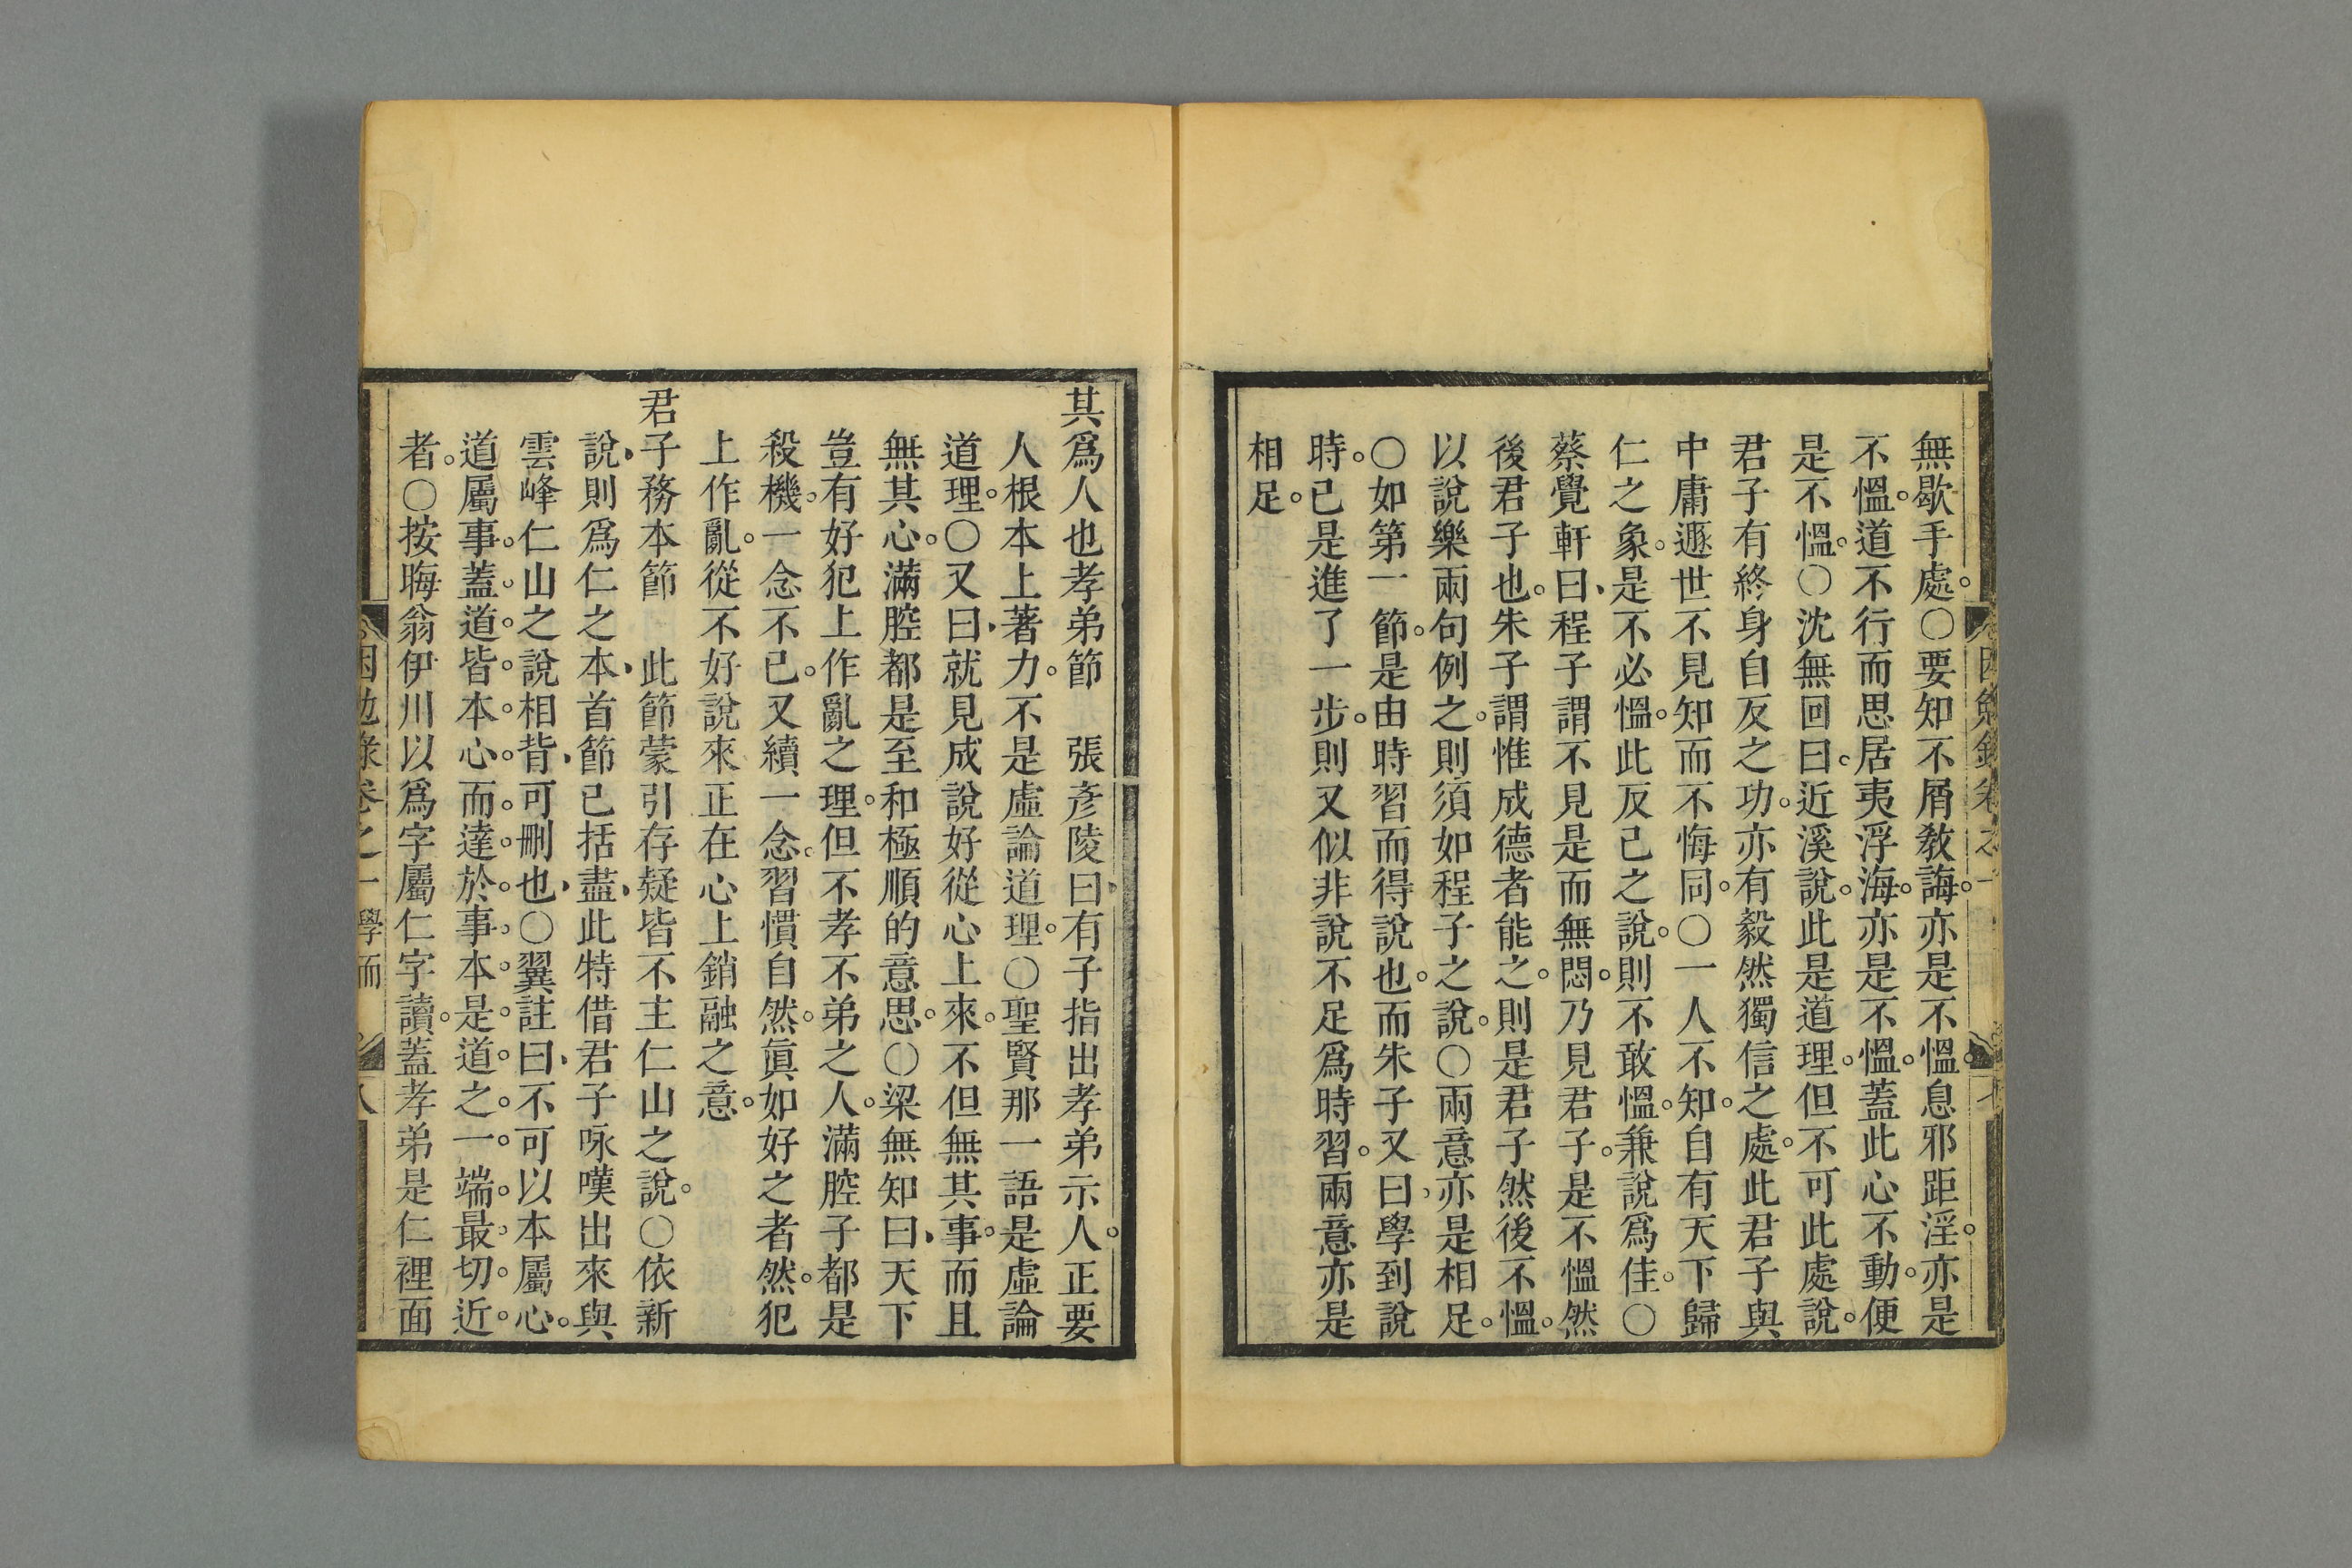 無歇手處。○要知不屑敎誨。亦是不慍。息邪距淫。亦是
不慍。道不行而思居夷浮海。亦是不慍。蓋此心不動。便
是不慍。○沈無回曰。近溪說。此是道理。但不可此處說。
君子有終身自反之功。亦有毅然獨信之處。此君子與
中庸遯世不見知而不悔同。○一人不知。自有天下歸
仁之象。是不必慍。此反己之說。則不敢慍。兼說爲佳。○
蔡覺軒曰、程子謂不見是而無悶。乃見君子。是不慍然
後君子也。朱子謂惟成德者能之。則是君子然後不慍。
以說樂兩句例之。則須如程子之說。○兩意亦是相足。
○如第一節。是由時習而得說也。而朱子又曰、學到說
時。已是進了一步。則又似非說不足爲時習。兩意亦是
相足。
其爲人也孝弟節　張彥陵曰、有子指出孝弟示人。正要
人根本上著力。不是虛論道理。○聖賢那一語是虛論
道理。○又曰、就見成說好從心上來。不但無其事。而且
無其心。滿腔都是至和極順的意思。○梁無知曰、天下
豈有好犯上作亂之理。但不孝不弟之人。滿腔子都是
殺機。一念不已。又續一念。習慣自然。眞如好之者然。犯
上作亂。從不好說來正在心上銷融之意。
君子務本節　此節蒙引存疑皆不主仁山之說。○依新
說、則爲仁之本、首節已括盡、此特借君子咏嘆出來與
雲峰仁山之說相背、可刪也、○翼註曰、不可以本屬心。
道屬事。蓋。道。皆。本。心。而。達。於。事。本。是。道。之。一。端。最。切。近。
者。○按晦翁伊川以爲字屬仁字讀。蓋孝弟是仁裡面
困勉錄卷之一學而　八